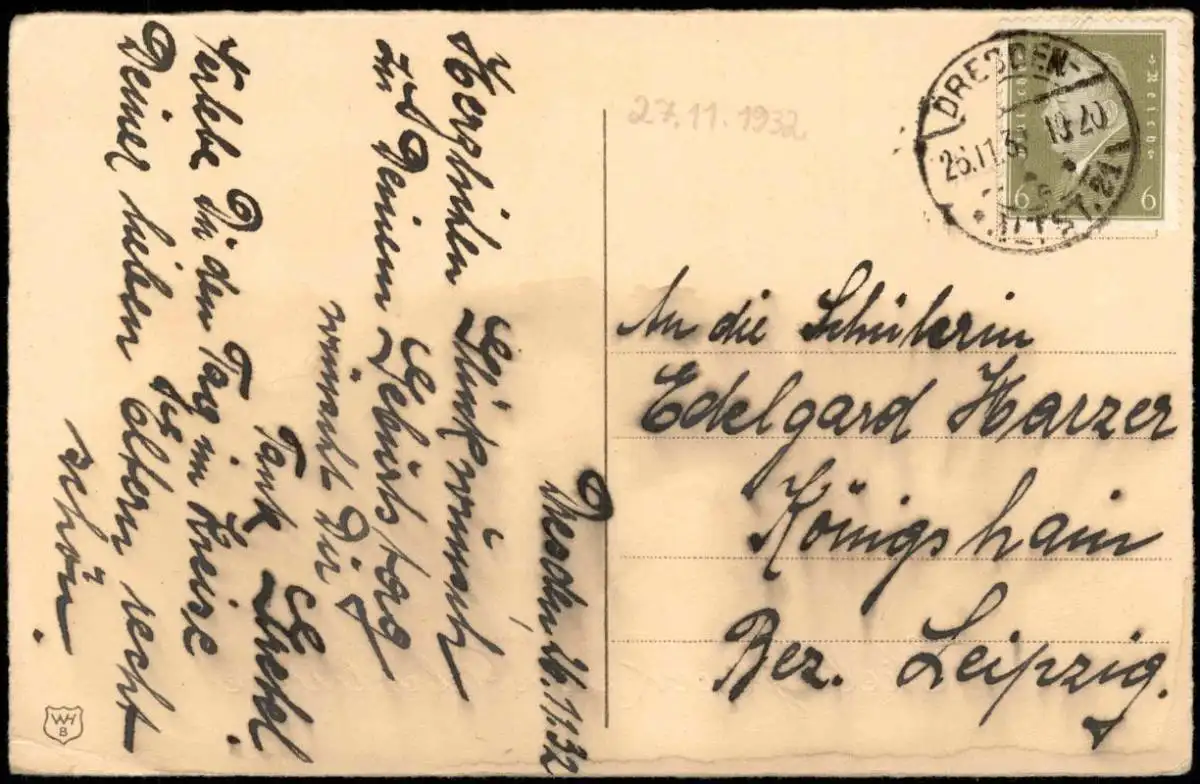 Dresden, 26.11.32
Herzlichen Glückwunsch
zu Deinem Geburtstag
wünscht Dir
Tante Gretel.
Verlebe Du den Tag im Kreise
Deiner lieben Eltern recht
schön.
27.11.1932
DRESDEN-
26.11.32
ALTST. 24
Reich
6 6
An die Schülerin
Edelgard Harzer
Königshain
Bez. Leipzig.
WH
B